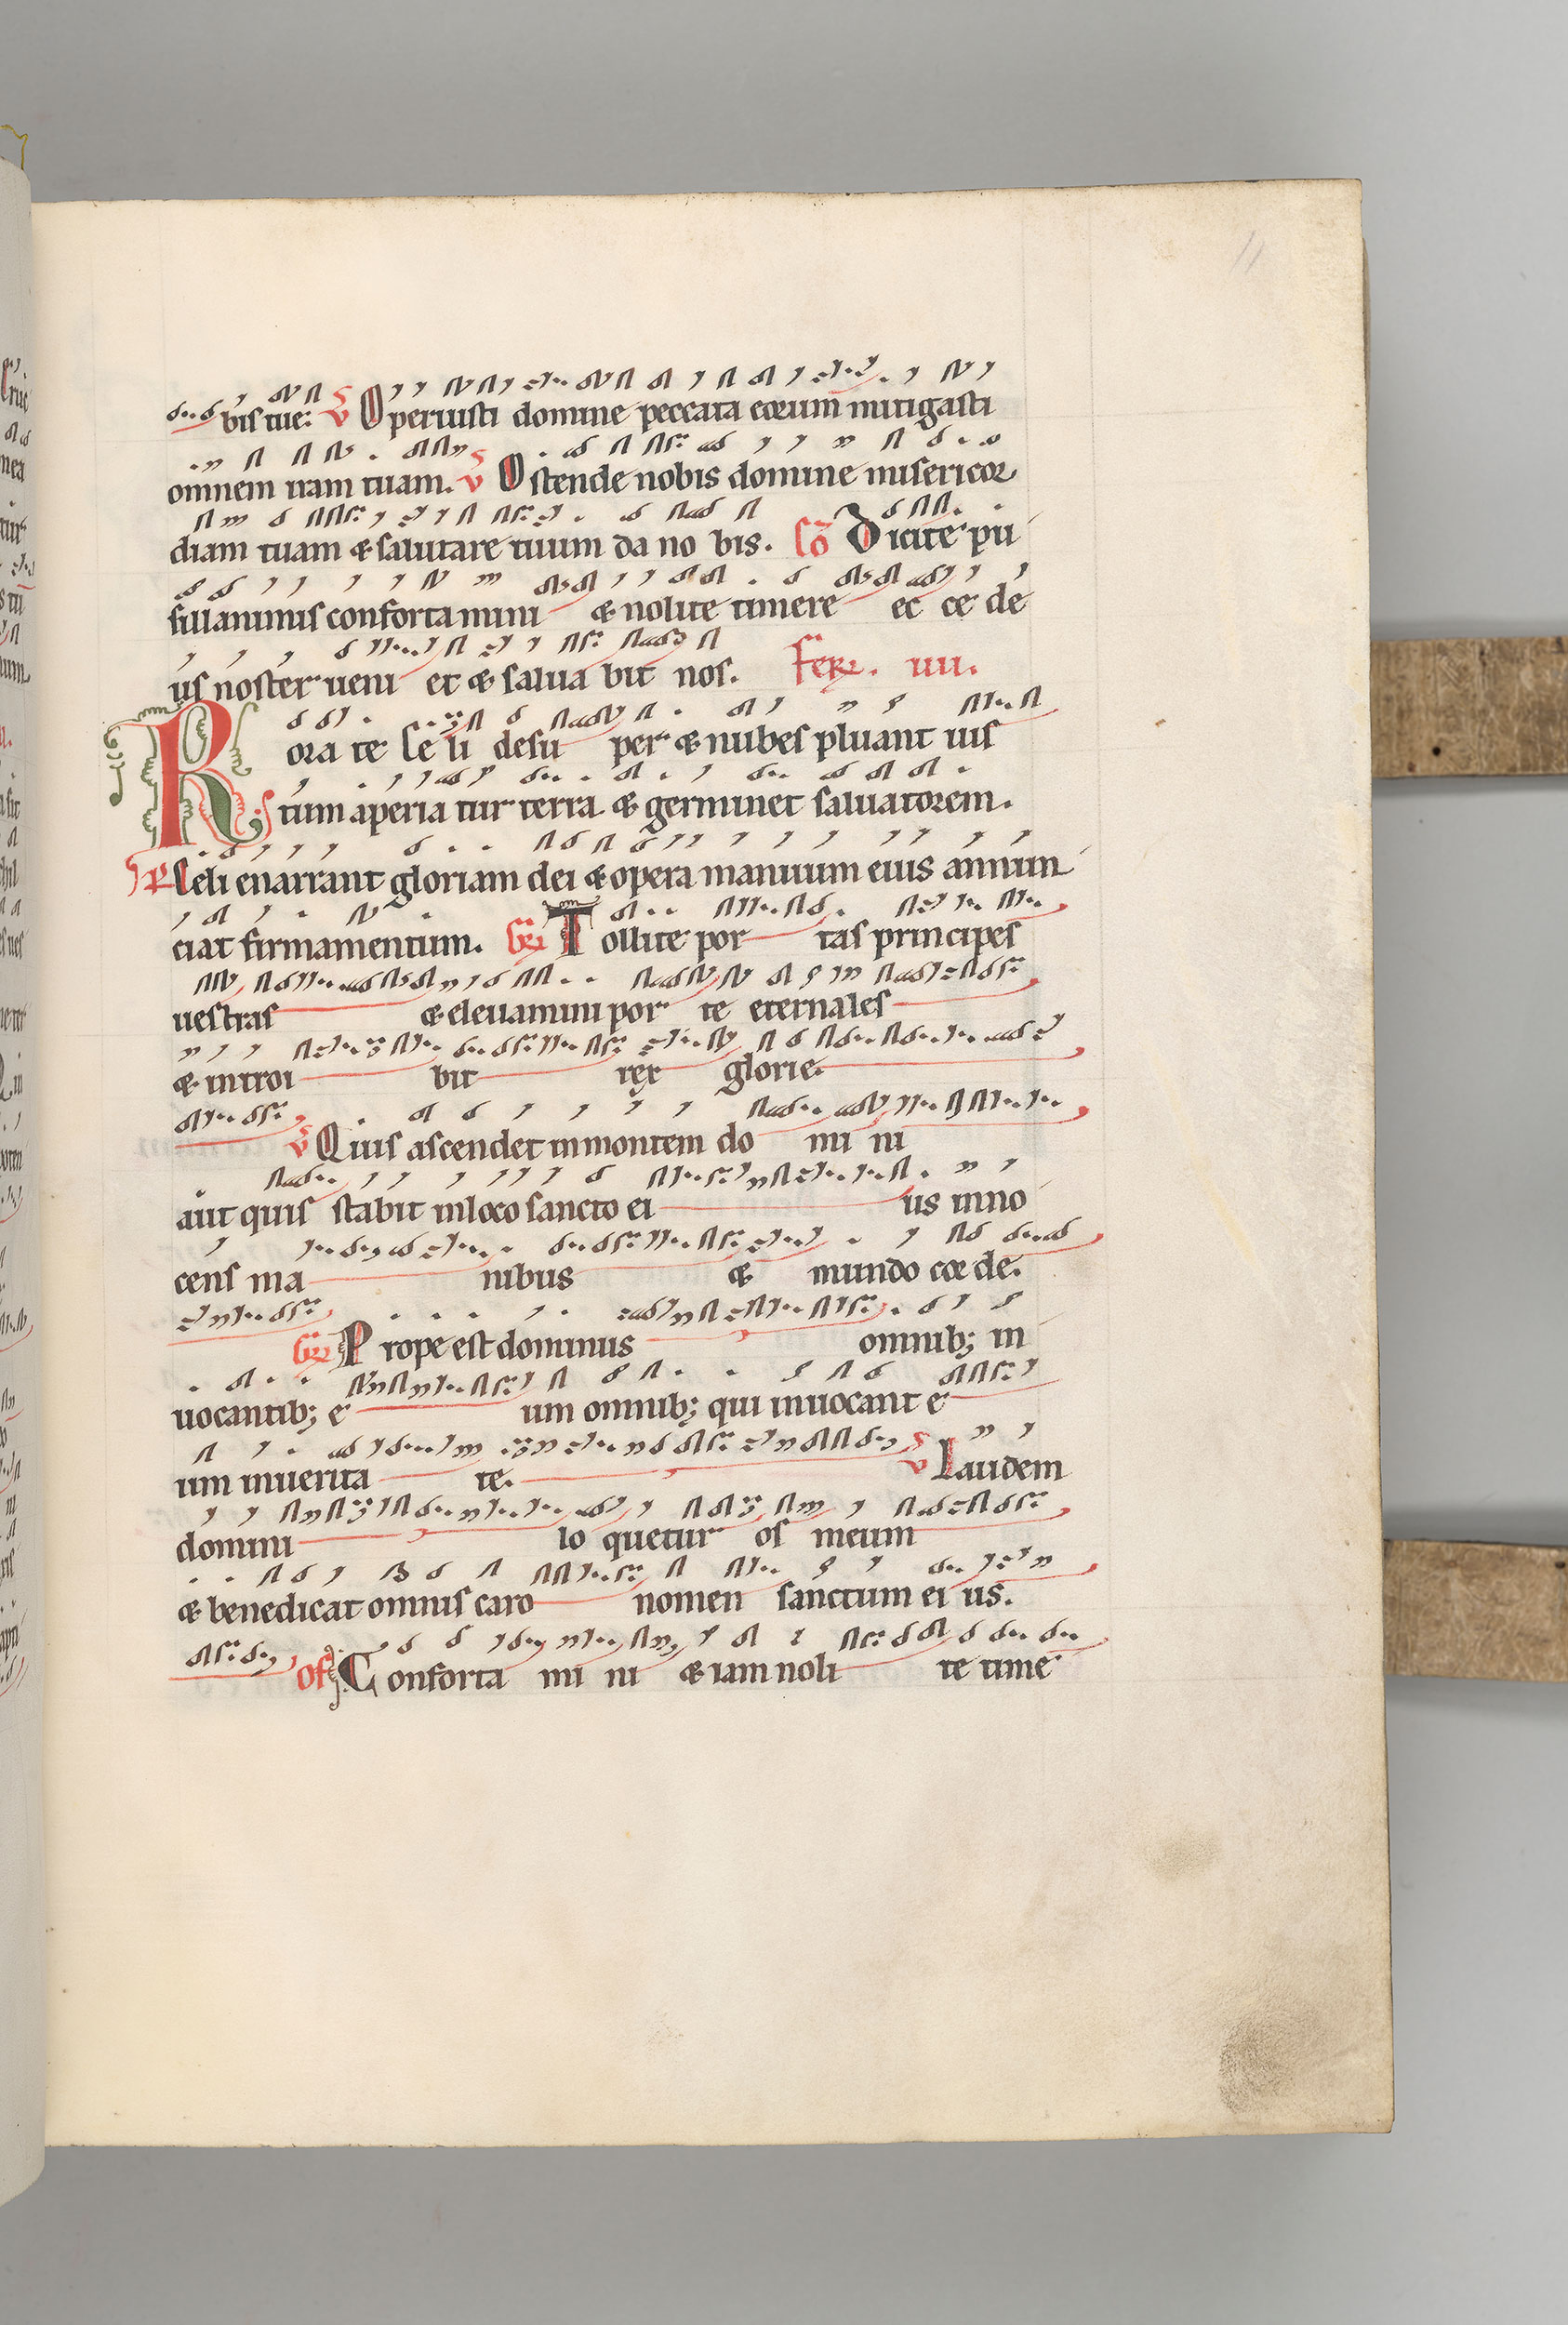 11
bis tue: v Operuisti domine peccata eorum mitigasti
omnem iram tuam. v Ostende nobis domine misericor
diam tuam & salutare tuum da no bis. Co Dicite pu
sillanimis conforta mini & nolite timere ec ce de
us noster veni et & salua bit nos. Fer. iiii.
Rora te celi desu per & nubes pluant ius
tum aperia tur terra & germinet saluatorem.
Ps Celi enarrant gloriam dei & opera manuum eius annun
ciat firmamentum. Gr Tollite por tas principes
uestras & eleuamini por te eternales
& introi bit rex glorie.
v Quis ascendet in montem do mi ni
aut quis stabit in loco sancto ei us inno
cens ma nibus & mundo corde.
Gr Prope est dominus omnib; in
uocantib; e um omnib; qui inuocant e
um in uerita te. v Laudem
domini lo quetur os meum
& benedicat omnis caro nomen sanctum ei us.
of Conforta mi ni & iam noli te time